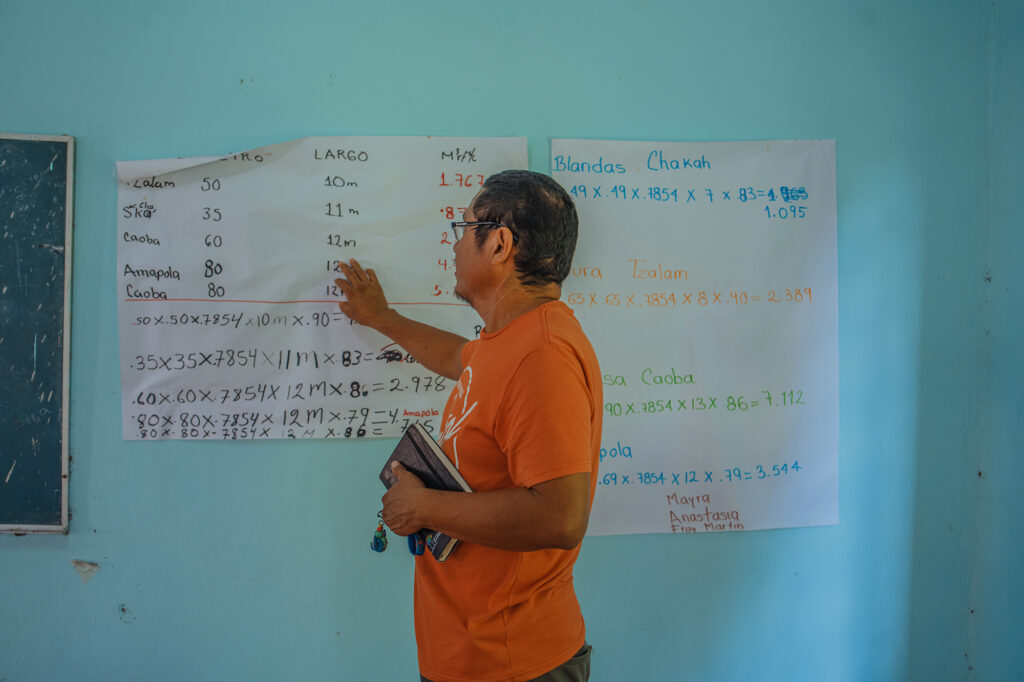 LARGO M³
.Lalam 50 10m 1.767
Ska' 35 11 m
Caoba 60 12m
Amapola 80
Caoba 80
.50x.50x.7854x10m x.90=
.35x35x.7854x11m x 83=
.60x.60x.7854x12m x.86=2.978
.80x.80x.7854x 12m x.79=4.
Amapola
.80x.80x.7854x 12 M x.80=
Blandas Chakah
49 x .49 x .7854 x 7 x .83=
1.095
Tzalam
65 x .65 x .7854 x 8 x .90=2.389
Caoba
90 x .7854 x 13 x .86=7.112
.69 x .7854 x 12 x .79=3.544
Mayra
Anastasia
Fray Martin